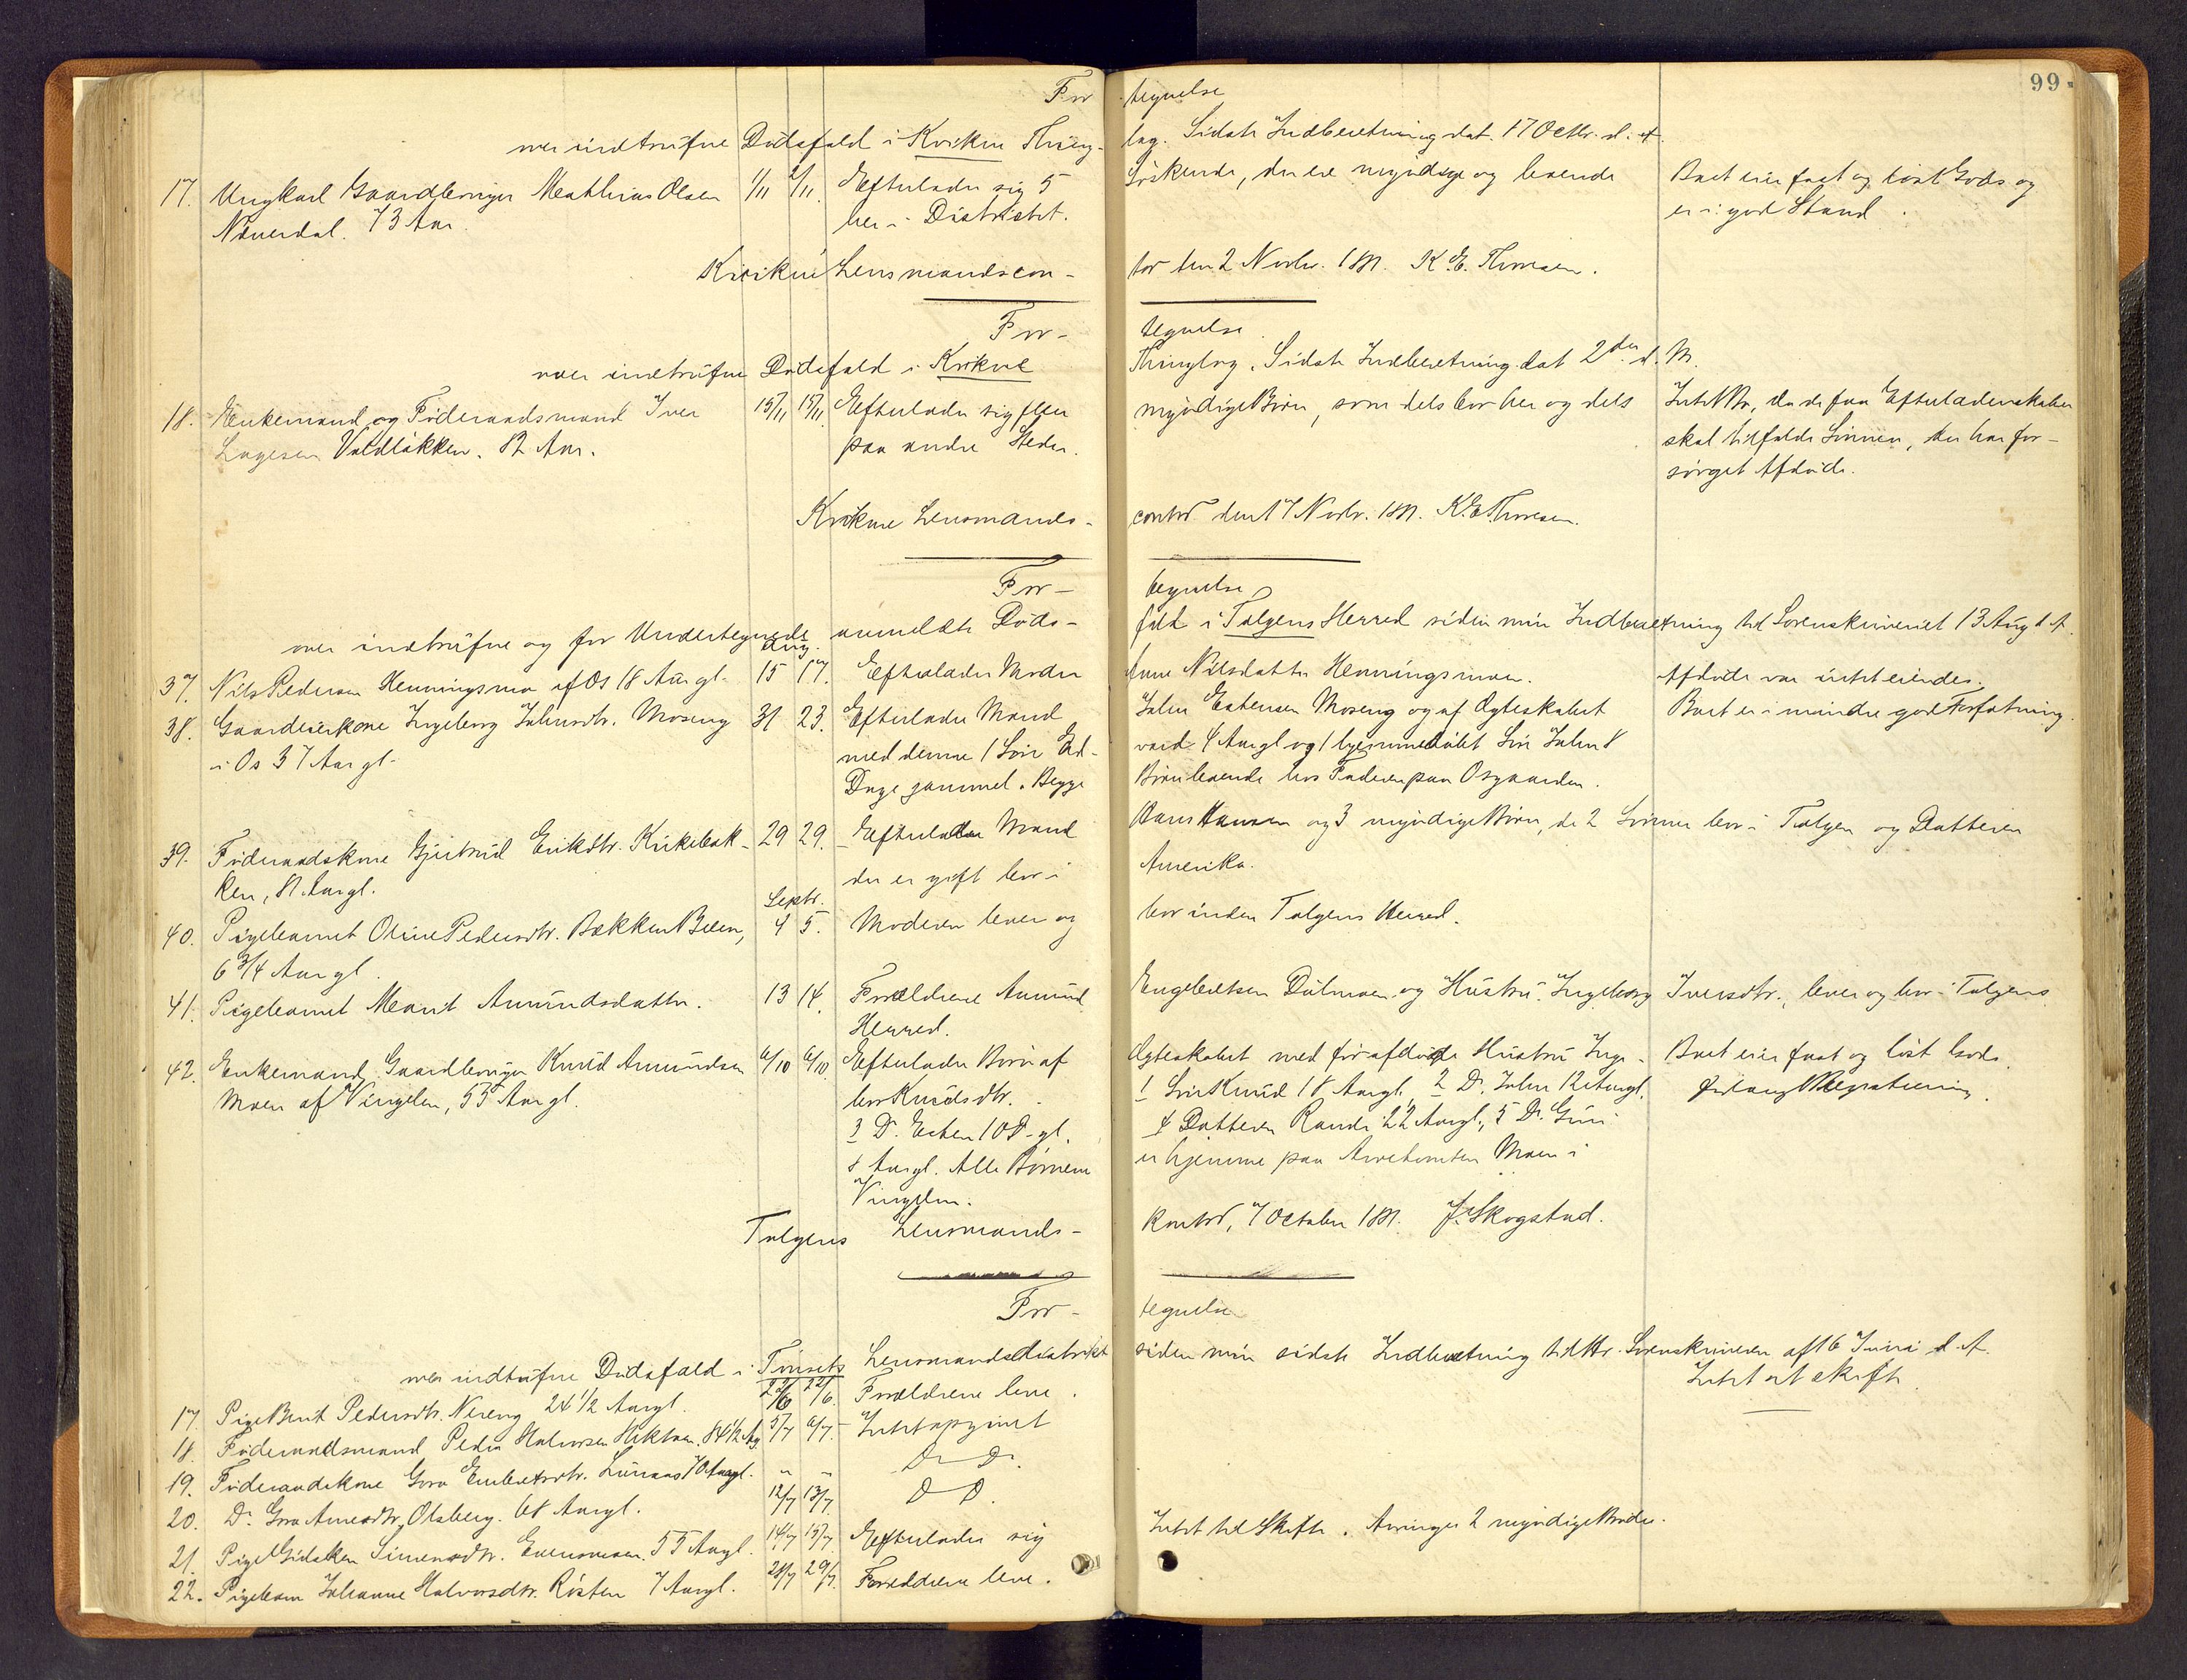 99
For tegnelse
over indtrufne Dødsfald i Kvikne Thing-lag. Sidste Indberetning dat. 17 Octbr. d. A.
17. Ungkarl Gaardbruger Mathias Olsen 1/11 2/11. Efterlader sig 5 Søskende, der ere myndige og boende Boet eier fast og løst Gods og
Næverdal. 73 Aar. her i Distriktet. er i god Stand.
Kvikne Lensmandscon-tor den 2 Novbr. 1891. K. E. Thoresen.
For-tegnelse
over indtrufne Dødsfald i Kvikne Thinglag. Sidste Indberetning dat 2den d. M.
18. Enkemand og Føderaadsmand Iver 15/11 15/11. Efterlader sig flere myndige Børn, som dels bor her og dels Intet Bo, da de faa Efterladenskaber
Lagesen Voldløkken. 82 Aar. paa andre Steder. skal tilfalde Sønnen, der har for-
sørget Afdøde.
Kvikne Lensmands-contor den 17 Novbr. 1891. K. E. Thoresen.
For-tegnelse
over indtrufne og for Undertegnede anmeldte Døds-fald i Tolgens Herred siden min Indberetning til Sorenskriveriet 13 Aug d. A.
Aug.
37. Nils Pedersen Henningsmo af Os 18 Aar gl. 15 17. Efterlader Moder Anne Nilsdatter Henningsmoen. Afdøde var intet eiendes.
38. Gaardeierkone Ingeborg Johnsdtr. Moseng 31 23. Efterlader Mand John Estensen Moseng og af Ægteskabet Boet er i mindre god Forfatning.
i Os 37 Aar gl. med denne 1 Søn Ed-vard 4 Aar gl og 1 hjemmedøbt Søn John 8
Dage gammel. Begge Børn boende hos Faderen paa Osgaarden.
39. Føderaadskone Gjertrud Eriksdtr. Kirkebak- 29 29. Efterlader Mand Hans Hansen og 3 myndige Børn, de 2 Sønner bor i Tolgen og Datteren
ken, 81 Aar gl. der er gift bor i Amerika.
Septr.
40. Pigebarnet Oline Pedersdtr. Bakken Been, 4 5. Moderen lever og bor inden Tolgens Herred.
6 3/4 Aar gl.
41. Pigebarnet Marit Amundsdatter. 13 14. Forældrene Amund Engebretsen Dølmoen og Hustru Ingeborg Iversdtr., lever og bor i Tolgens
Herred.
42. Enkemand Gaardbruger Knud Amundsen 6/10 6/10. Efterlader Børn af Ægteskabet med før afdøde Hustru Inge- Boet eier fast og løst Gods.
Moen af Vingelen, 55 Aar gl. bor Knudsdtr. 1 Søn Knud 18 Aar gl., 2 Do. John 12 Aar gl. Forlangt Registrering
3 Do. Esten 10 do. gl. 4 Datteren Randi 22 Aar gl., 5 Do. Guri
8 Aar gl. Alle Børnene er hjemme paa Arvetomten Moen i
Vingelen.
Tolgens Lensmands-kontor, 7 October 1891. J. Skogstad.
For-tegnelse
over indtrufne Dødsfald i Tønsets Lensmandsdistrikt siden min sidste Indberetning til Hr. Sorenskriveren af 16 Juni d. A.
17. Pige Berit Pedersdtr. Nereng 24 1/2 Aar gl. 22/6 22/6. Forældrene leve. Intet at skifte
18. Føderaadsmand Peder Halvorsen Hektoen. 84 1/2 Aar 5/7 6/7. Intet opgivet
19. Føderaadskone Goro Embretsdtr. Lunaas 70 Aar gl. " " Do Do.
20. Do. Goro Arnesdtr. Olsberg. 68 Aar gl. 12/7 13/7. Do Do.
21. Pige Gidsken Simensdtr. Evensmoen. 55 Aar gl. 14/7 15/7. Efterlader sig Intet til Skifte. Arvinger 2 myndige Brødre.
22. Pigebarn Johanne Halvorsdtr. Røsten 7 Aar gl. 28/7 29/7. Forældrene leve.